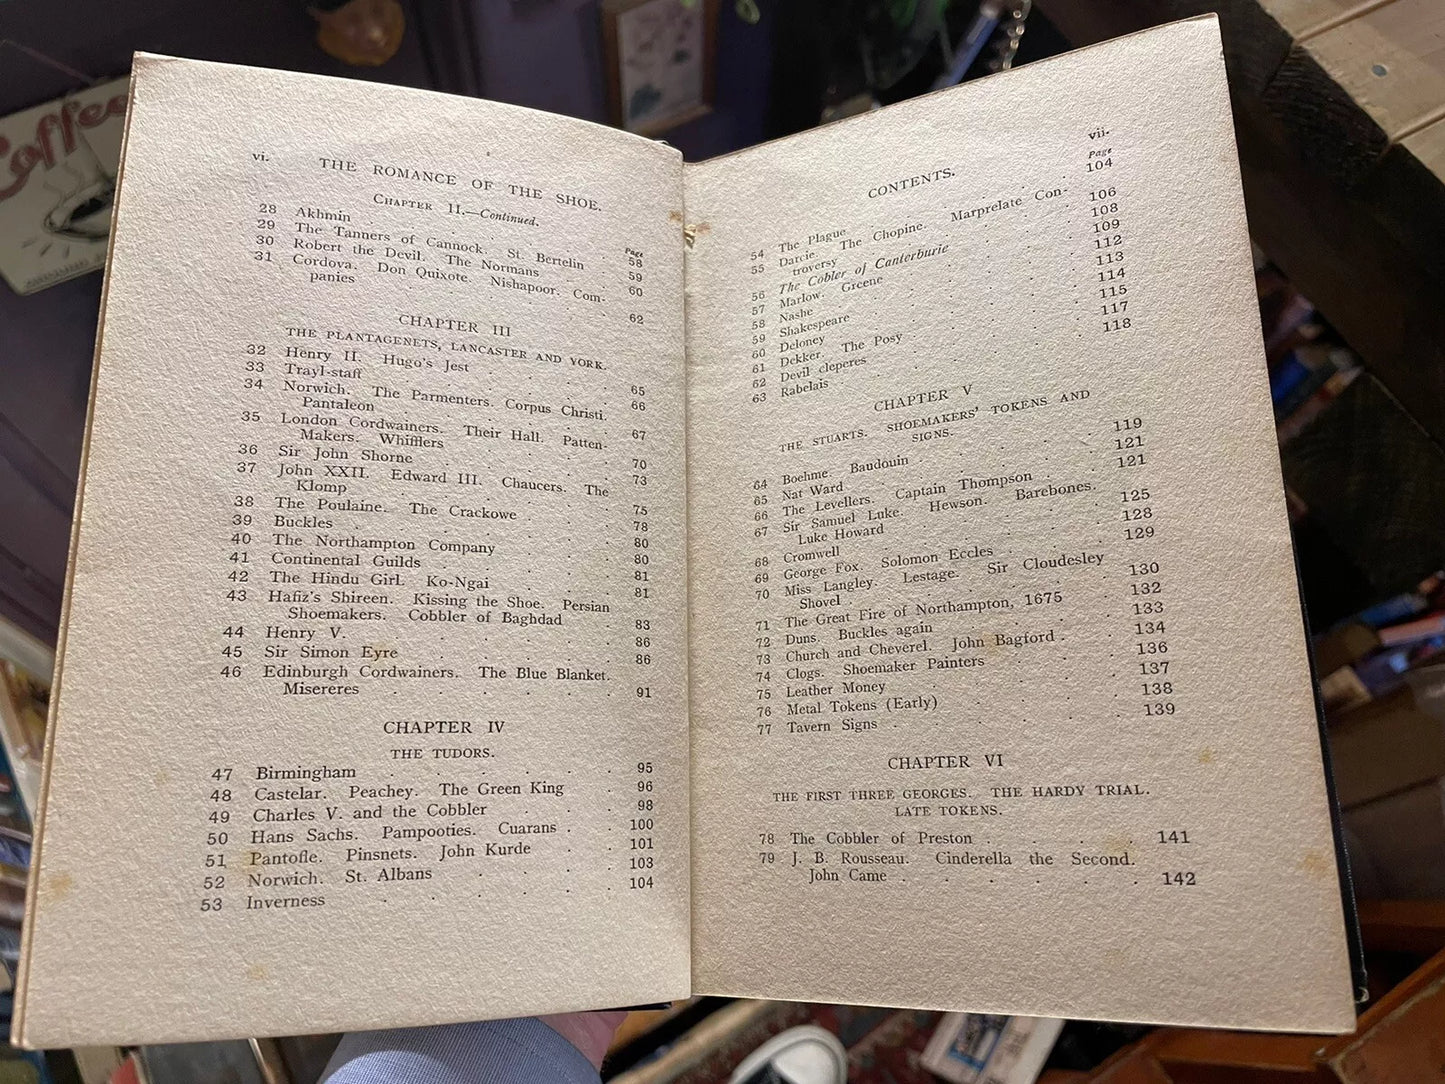 Coffee
vi. THE ROMANCE OF THE SHOE.
CHAPTER II.—Continued.
Page
28 Akhmin . . . . . . 58
29 The Tanners of Cannock. St. Bertelin . 59
30 Robert the Devil. The Normans . . 60
31 Cordova. Don Quixote. Nishapoor. Com-
panies . . . . . . 62
CHAPTER III
THE PLANTAGENETS, LANCASTER AND YORK.
32 Henry II. Hugo's Jest . . . . 65
33 Trayl-staff . . . . . . 66
34 Norwich. The Parmenters. Corpus Christi.
Pantaleon . . . . . . 67
35 London Cordwainers. Their Hall. Patten-
Makers. Whifflers . . . . 70
36 Sir John Shorne . . . . . 73
37 John XXII. Edward III. Chaucers. The
Klomp . . . . . . 75
38 The Poulaine. The Crackowe . . . 78
39 Buckles . . . . . . 80
40 The Northampton Company . . . 80
41 Continental Guilds . . . . . 81
42 The Hindu Girl. Ko-Ngai . . . 81
43 Hafiz's Shireen. Kissing the Shoe. Persian
Shoemakers. Cobbler of Baghdad . 83
44 Henry V. . . . . . . 86
45 Sir Simon Eyre . . . . . 86
46 Edinburgh Cordwainers. The Blue Blanket.
Misereres . . . . . . 91
CHAPTER IV
THE TUDORS.
47 Birmingham . . . . . . 95
48 Castelar. Peachey. The Green King . 96
49 Charles V. and the Cobbler . . . 98
50 Hans Sachs. Pampooties. Cuarans . . 100
51 Pantofle. Pinsnets. John Kurde . . 101
52 Norwich. St. Albans . . . . 103
53 Inverness . . . . . . 104
CONTENTS. vii.
Page
54 The Plague . . . . . . 104
55 Darcie. The Chopine. Marprelate Con-
troversy . . . . . . 106
56 The Cobler of Canterburie . . . 108
57 Marlow. Greene . . . . . 109
58 Nashe . . . . . . 112
59 Shakespeare . . . . . . 113
60 Deloney . . . . . . 114
61 Dekker. The Posy . . . . 115
62 Devil cleperes . . . . . 117
63 Rabelais . . . . . . 118
CHAPTER V
THE STUARTS. SHOEMAKERS' TOKENS AND
SIGNS.
64 Boehme. Baudouin . . . . . 119
65 Nat Ward . . . . . . 121
66 The Levellers. Captain Thompson . . 121
67 Sir Samuel Luke. Hewson. Barebones.
Luke Howard . . . . . 125
68 Cromwell . . . . . . 128
69 George Fox. Solomon Eccles . . . 129
70 Miss Langley. Lestage. Sir Cloudesley
Shovel . . . . . . 130
71 The Great Fire of Northampton, 1675 . 132
72 Duns. Buckles again . . . . 133
73 Church and Cheverel. John Bagford . . 134
74 Clogs. Shoemaker Painters . . . 136
75 Leather Money . . . . . 137
76 Metal Tokens (Early) . . . . 138
77 Tavern Signs . . . . . . 139
CHAPTER VI
THE FIRST THREE GEORGES. THE HARDY TRIAL.
LATE TOKENS.
78 The Cobbler of Preston . . . . 141
79 J. B. Rousseau. Cinderella the Second.
John Came . . . . . . 142